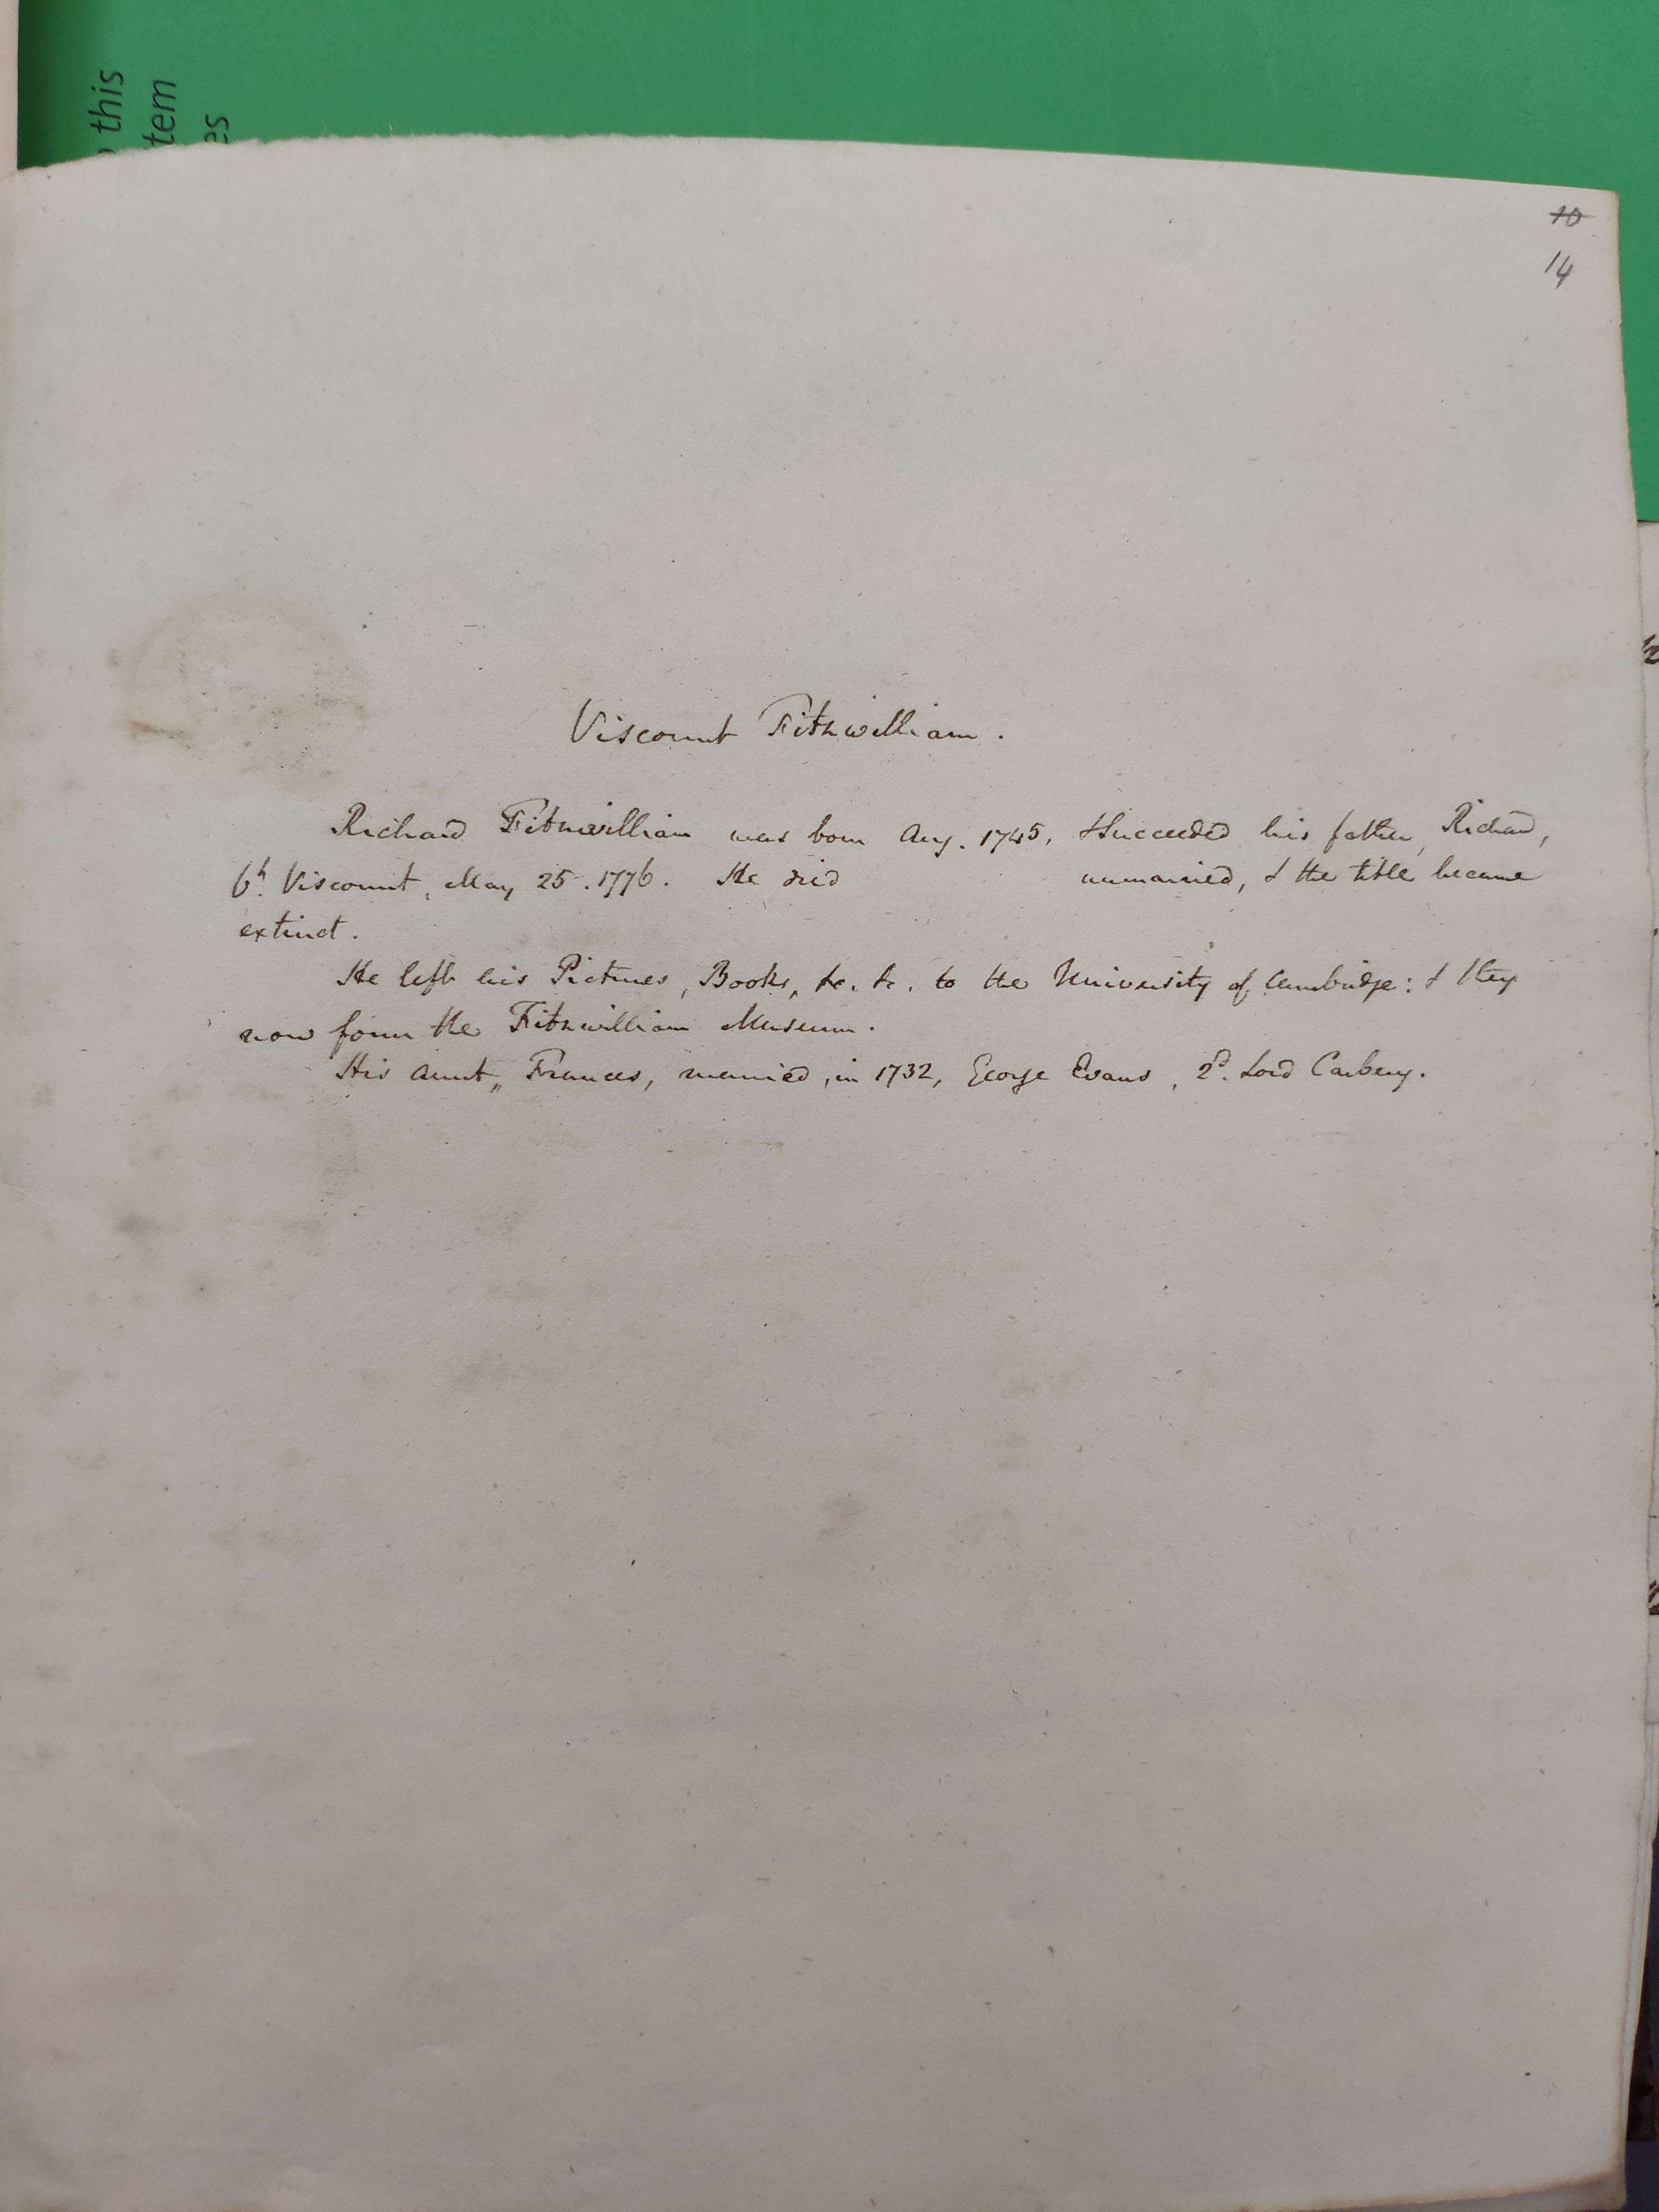 this
tem
es
10
14
Viscount Fitzwilliam.
Richard Fitzwilliam was born Aug. 1745, & succeeded his father, Richard,
6h. Viscount, May 25. 1776. He died unmarried, & the title became
extinct.
He left his Pictures, Books, &c. &c. to the University of Cambridge: & they
now form the Fitzwilliam Museum.
His aunt, Frances, married, in 1732, George Evans, 2d. Lord Carbery.